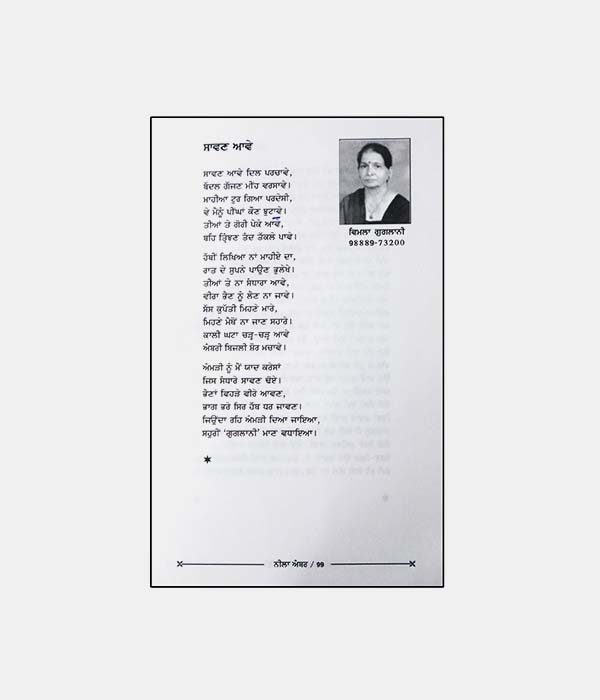 ਸਾਵਣ ਆਵੇ
ਸਾਵਣ ਆਵੇ ਦਿਲ ਪਰਚਾਵੇ,
ਬੱਦਲ ਗੱਜਣ ਮੀਂਹ ਵਰਸਾਵੇ।
ਮਾਹੀਆ ਟੁਰ ਗਿਆ ਪਰਦੇਸੀ,
ਵੇ ਮੈਨੂੰ ਪੀਂਘਾਂ ਕੌਣ ਝੁਟਾਵੇ।
ਤੀਆਂ ਤੇ ਗੋਰੀ ਪੇਕੇ ਆਵੇ,
ਬਹਿ ਤ੍ਰਿੰਞਣ ਤੰਦ ਤੱਕਲੇ ਪਾਵੇ।
ਹੱਥੀਂ ਲਿਖਿਆ ਨਾਂ ਮਾਹੀਏ ਦਾ,
ਰਾਤ ਦੇ ਸੁਪਨੇ ਪਾਉਣ ਭੁਲੇਖੇ।
ਤੀਆਂ ਤੇ ਨਾ ਸੰਧਾਰਾ ਆਵੇ,
ਵੀਰਾ ਭੈਣ ਨੂੰ ਲੈਣ ਨਾ ਜਾਵੇ।
ਸੱਸ ਕੁਪੱਤੀ ਮਿਹਣੇ ਮਾਰੇ,
ਮਿਹਣੇ ਮੈਥੋਂ ਨਾ ਜਾਣ ਸਹਾਰੇ।
ਕਾਲੀ ਘਟਾ ਚੜ੍ਹ-ਚੜ੍ਹ ਆਵੇ
ਅੰਬਰੀਂ ਬਿਜਲੀ ਸ਼ੋਰ ਮਚਾਵੇ।
ਅੰਮੜੀ ਨੂੰ ਮੈਂ ਯਾਦ ਕਰੇਸਾਂ
ਜਿਸ ਸੰਧਾਰੇ ਸਾਵਣ ਢੋਏ।
ਭੈਣਾਂ ਵਿਹੜੇ ਵੀਰੇ ਆਵਣ,
ਭਾਗ ਭਰੇ ਸਿਰ ਹੱਥ ਧਰ ਜਾਵਣ।
ਜਿਉਂਦਾ ਰਹਿ ਅੰਮੜੀ ਦਿਆ ਜਾਇਆ,
ਸਹੁਰੀਂ 'ਗੁਗਲਾਨੀ' ਮਾਣ ਵਧਾਇਆ।
ਵਿਮਲਾ ਗੁਗਲਾਨੀ
98889-73200
ਨੀਲਾ ਅੰਬਰ / 99